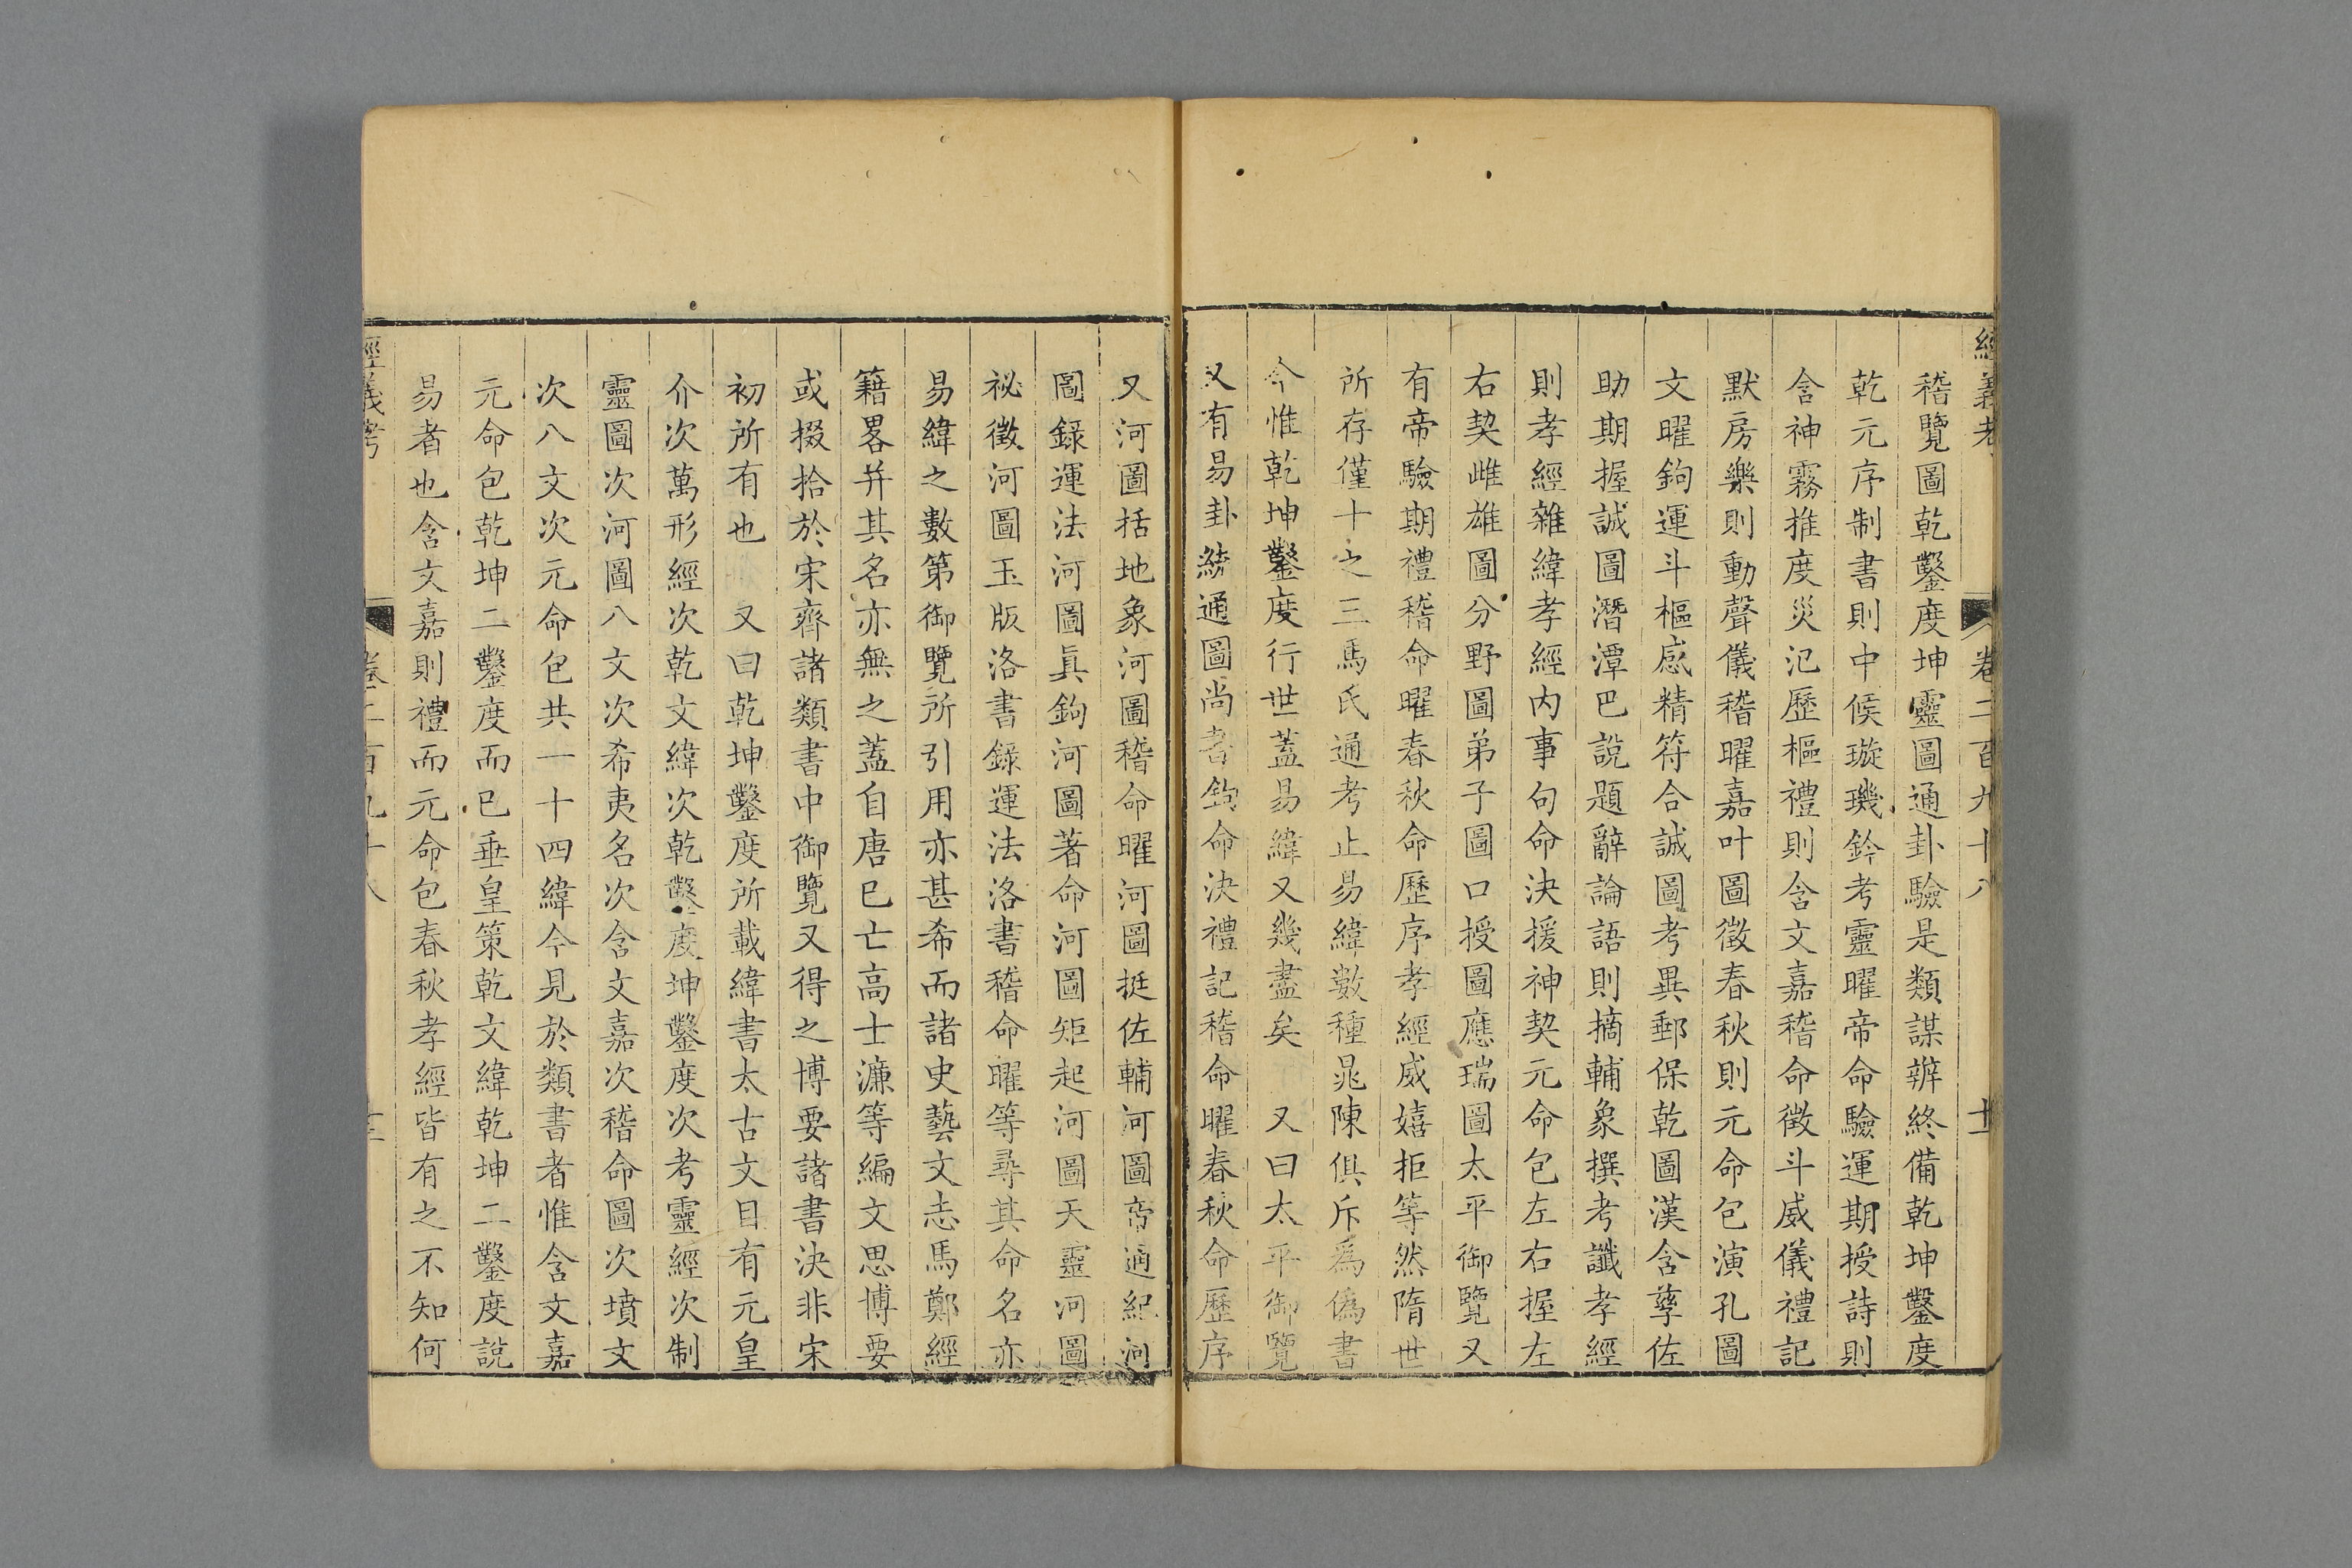 經義考 卷二百九十八 十
稽覽圖乾鑿度坤靈圖通卦驗是類謀辨終備乾坤鑿度
乾元序制書則中候璇璣鈐考靈曜帝命驗運期授詩則
含神霧推度災氾歷樞禮則含文嘉稽命徵斗威儀禮記
默房樂則動聲儀稽曜嘉叶圖徵春秋則元命包演孔圖
文曜鉤運斗樞感精符合誠圖考異郵保乾圖漢含孳佐
助期握誠圖潛潭巴說題辭論語則摘輔象撰考讖孝經
則孝經雜緯孝經內事句命決援神契元命包左右握左
右契雌雄圖分野圖弟子圖口授圖應瑞圖太平御覽又
有帝驗期禮稽命曜春秋命歷序孝經威嬉拒等然隋世
所存僅十之三馬氏通考止易緯數種晁陳俱斥為偽書
今惟乾坤鑿度行世蓋易緯又幾盡矣 又曰太平御覽
又有易卦統通圖尚書鉤命決禮記稽命曜春秋命歷序
又河圖括地象河圖稽命曜河圖挺佐輔河圖帝通紀河
圖錄運法河圖眞鉤河圖著命河圖矩起河圖天靈河圖
祕徵河圖玉版洛書錄運法洛書稽命曜等尋其命名亦
易緯之數第御覽所引用亦甚希而諸史藝文志馬鄭經
籍畧并其名亦無之蓋自唐已亡高士濂等編文思博要
或掇拾於宋齊諸類書中御覽又得之博要諸書決非宋
初所有也 又曰乾坤鑿度所載緯書太古文目有元皇
介次萬形經次乾文緯次乾鑿度坤鑿度次考靈經次制
靈圖次河圖八文次希夷名次含文嘉次稽命圖次墳文
次八文次元命包共一十四緯今見於類書者惟含文嘉
元命包乾坤二鑿度而已垂皇策乾文緯乾坤二鑿度說
易者也含文嘉則禮而元命包春秋孝經皆有之不知何
經義考 卷二百九十八